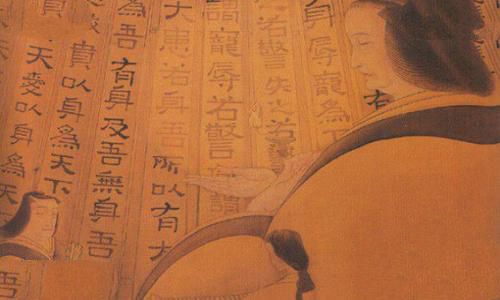 有
身辱寵為下
若警失之若警
謂寵辱若警
大患若身吾所以有大
為吾有身及吾無身吾
貴以身為天下
天愛以身為天